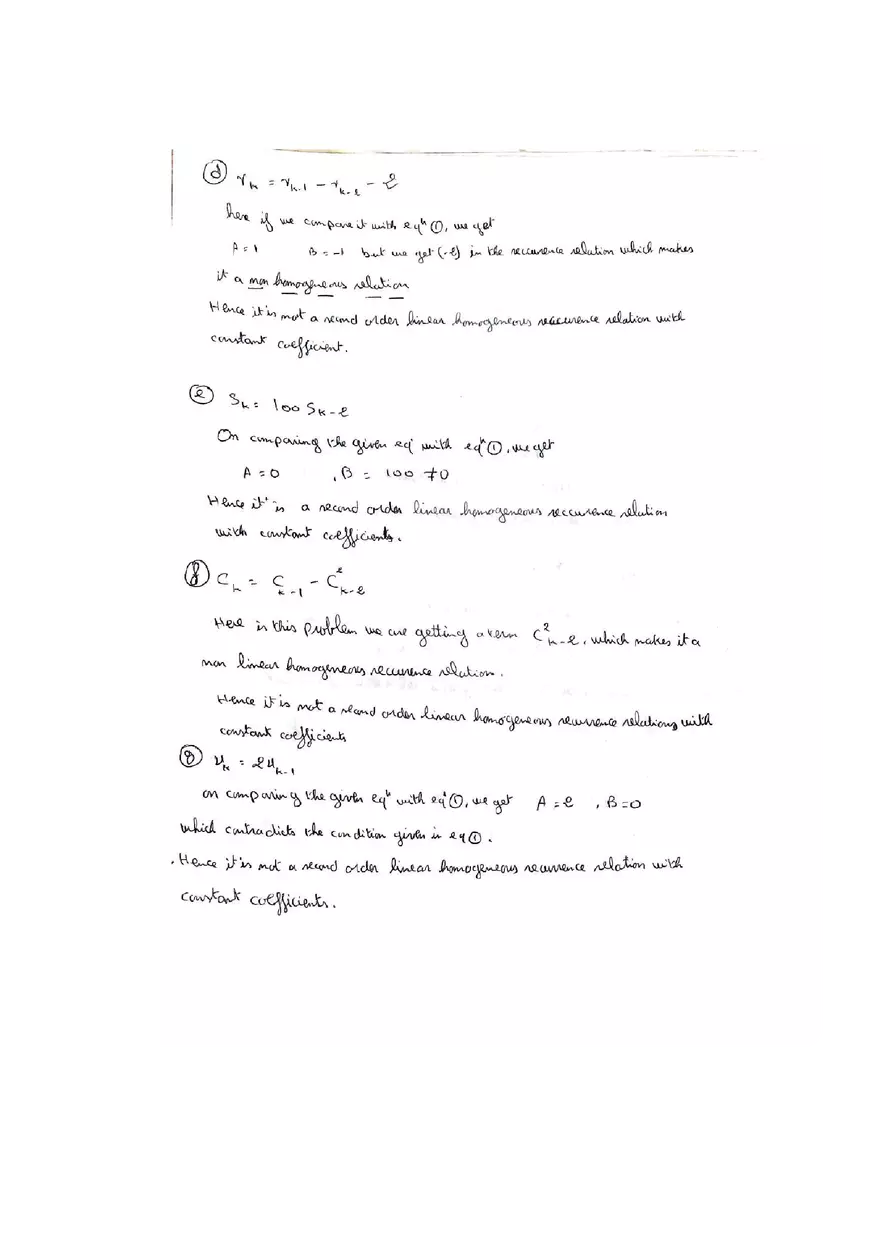 (d) r_k = r_{k-1} - r_{k-2} - 2
here if we compare it with eqⁿ ①, we get
A = 1 B = -1 but we get (-2) in the reccurence relation which makes
it a non homogeneous relation
Hence it is not a second order linear homogeneous reccurence relation with
constant coefficient.
(e) S_k = 100 S_{k-2}
On comparing the given eqⁿ with eqⁿ ①, we get
A = 0 , B = 100 ≠ 0
Hence it is a second order linear homogeneous reccurence relation
with constant coefficients.
(f) C_k = C_{k-1} - C²_{k-2}
Here in this problem we are getting a term C²_{k-2}, which makes it a
non linear homogeneous reccurence relation.
Hence it is not a second order linear homogeneous recurrence relations with
constant coefficients
(g) U_k = 2U_{k-1}
on comparing the given eqⁿ with eqⁿ ①, we get A = 2 , B = 0
which contradicts the condition given in eq ①.
. Hence it is not a second order linear homogeneous recurrence relation with
constant coefficients.